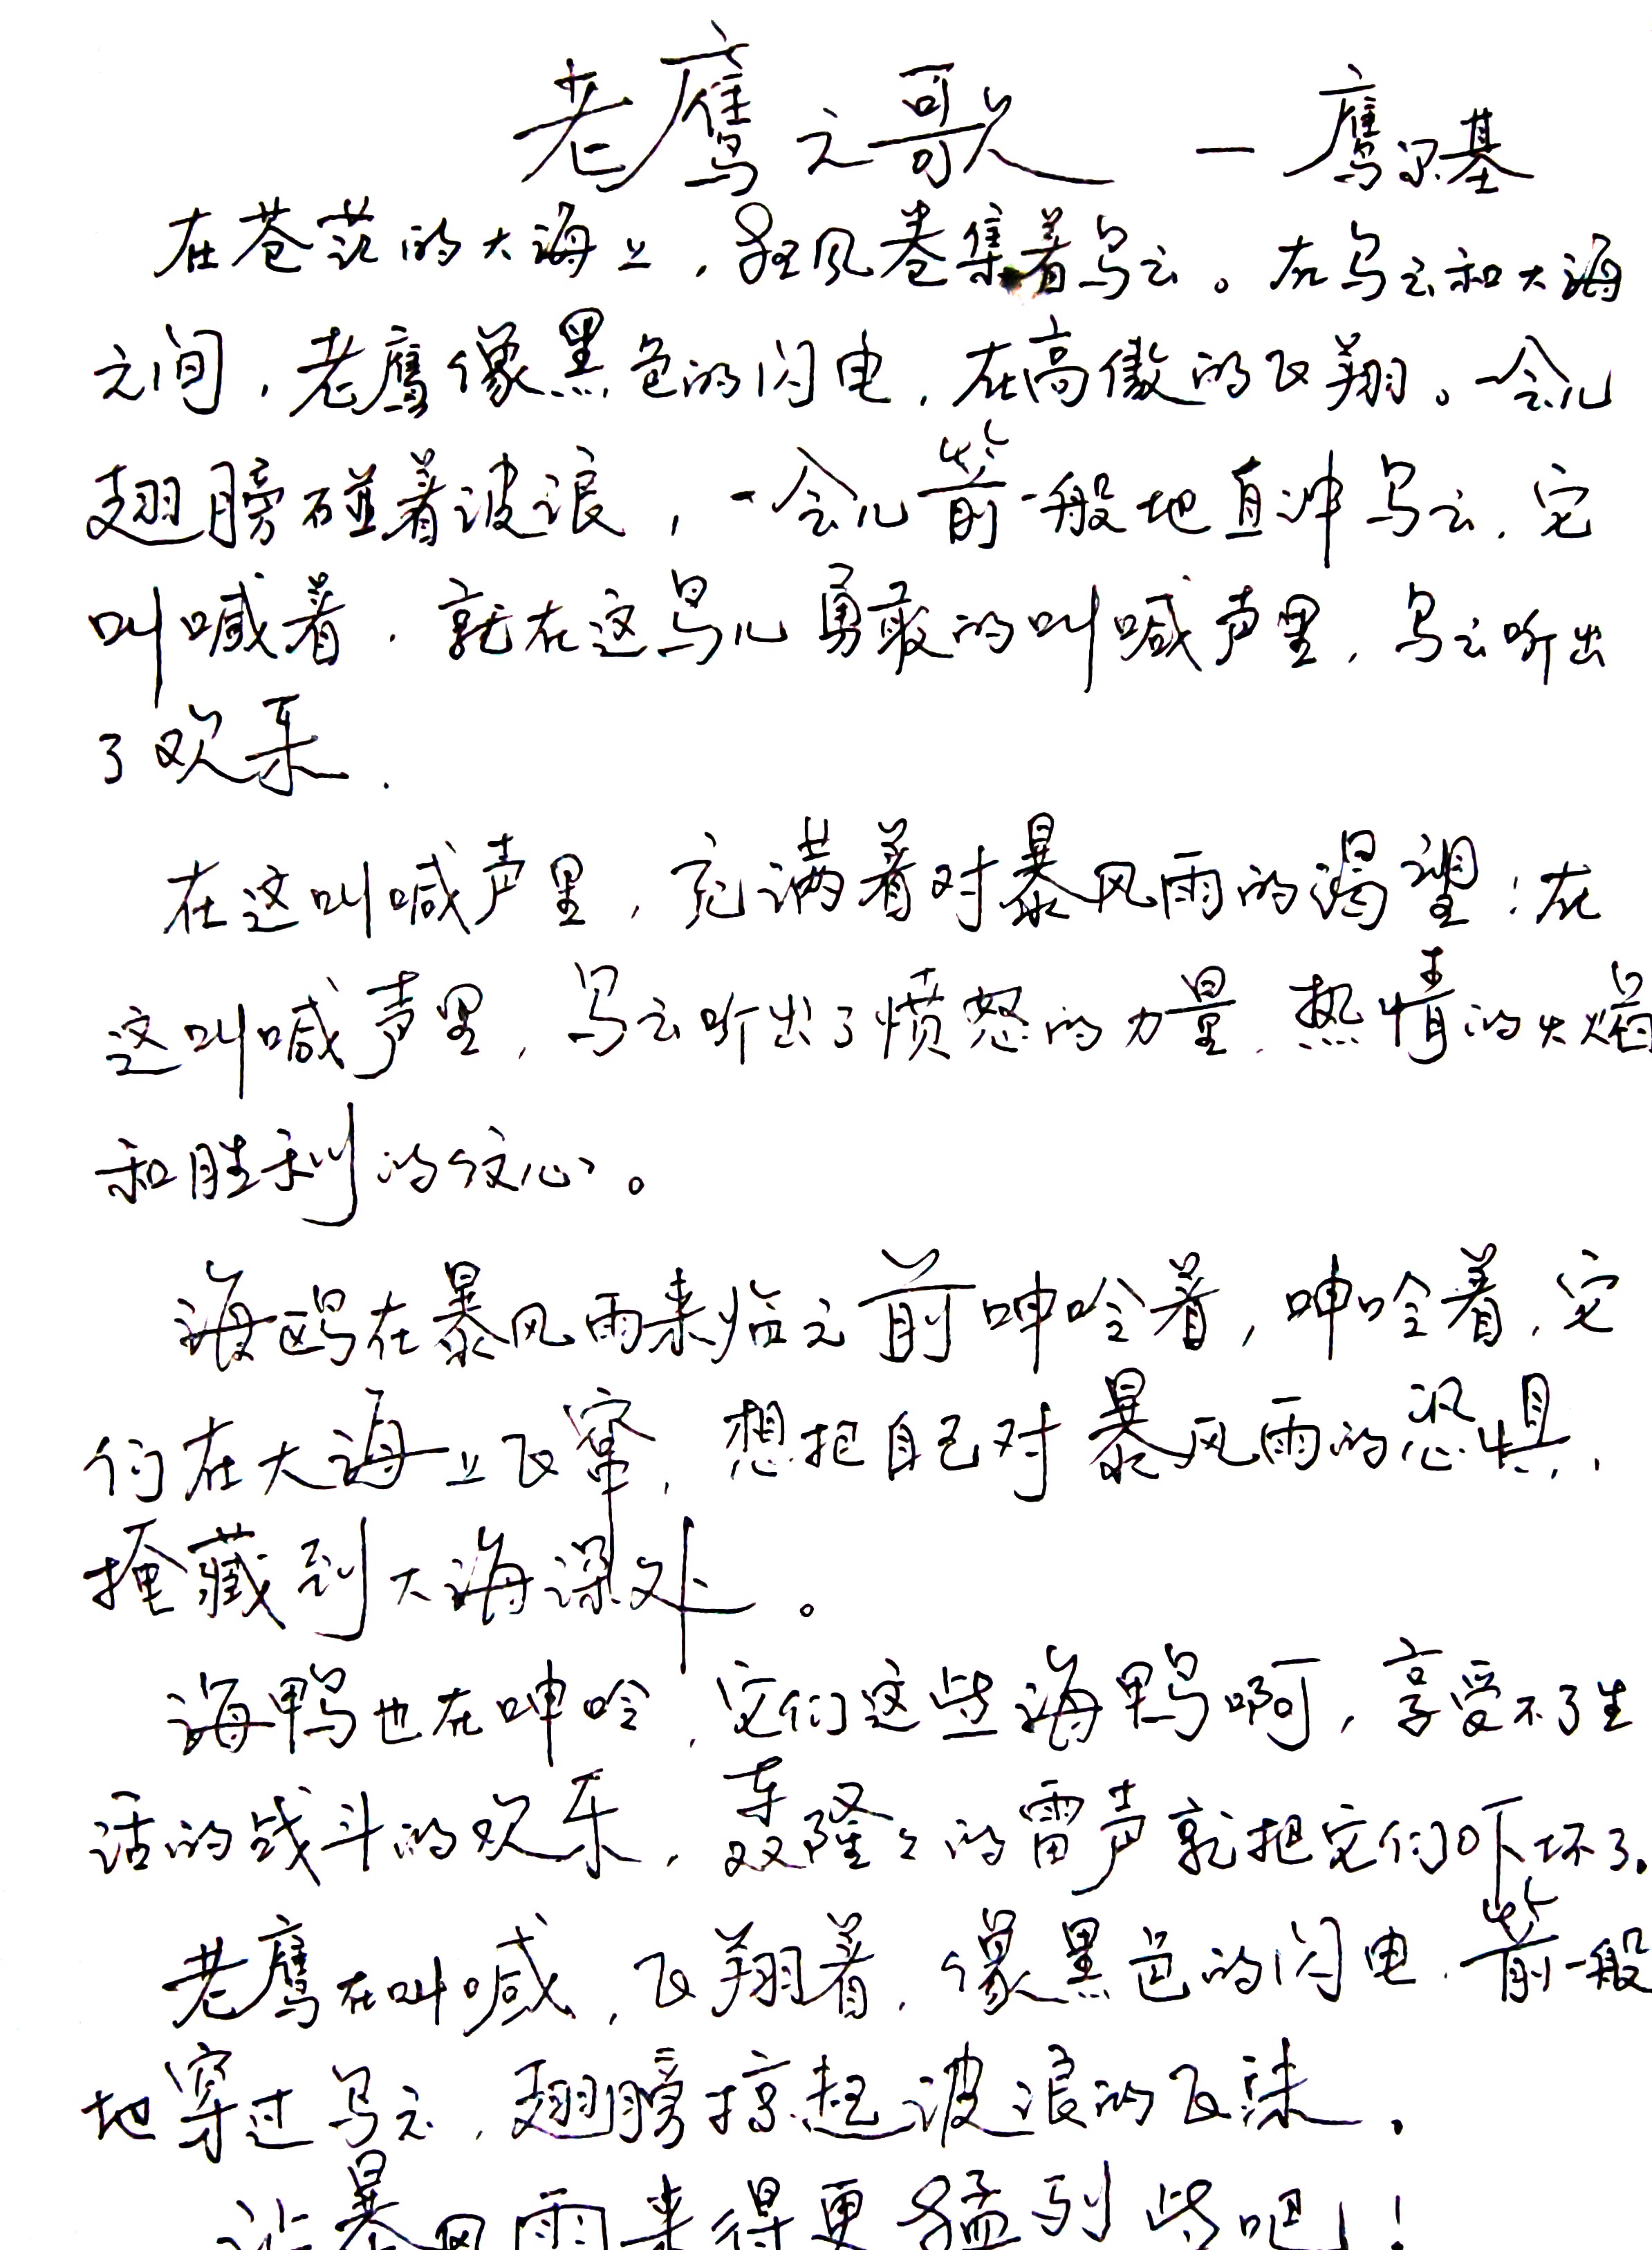 老鹰之歌 — 鹰尔基
在苍茫的大海上，狂风卷集着乌云。在乌云和大海
之间，老鹰像黑色的闪电，在高傲的飞翔。一会儿
翅膀碰着波浪，一会儿箭一般地直冲乌云，它
叫喊着，就在这鸟儿勇敢的叫喊声里，乌云听出
了欢乐．
在这叫喊声里，充满着对暴风雨的渴望；在
这叫喊声里，乌云听出了愤怒的力量、热情的火焰
和胜利的信心。
海鸥在暴风雨来临之前呻吟着，呻吟着，它
们在大海上飞窜，想把自己对暴风雨的恐惧，
掩藏到大海深处。
海鸭也在呻吟，它们这些海鸭啊，享受不了生
活的战斗的欢乐，轰隆隆的雷声就把它们吓坏了。
老鹰在叫喊，飞翔着，像黑色的闪电，箭一般
地穿过乌云，翅膀掠起波浪的飞沫．
让暴风雨来得更猛烈些吧！！